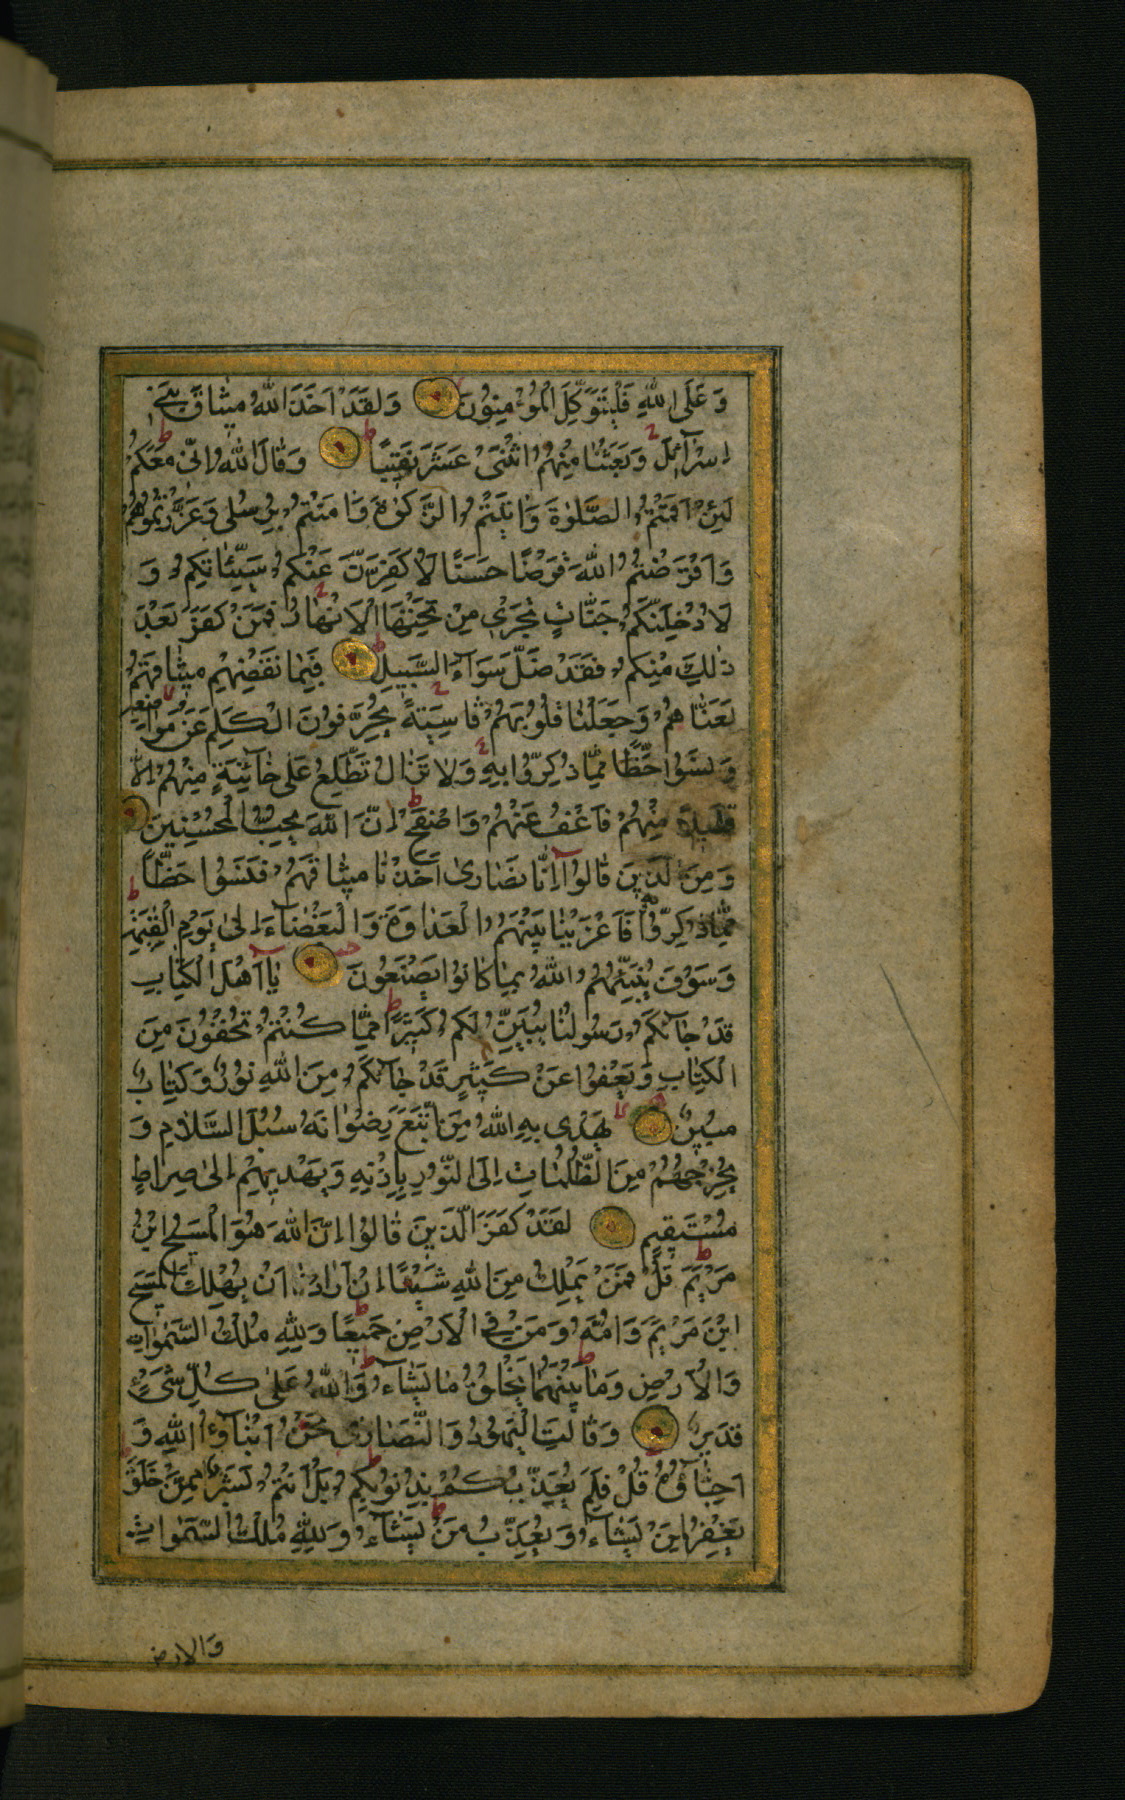 وَعَلَى اللّٰهِ فَلْيَتَوَكَّلِ الْمُؤْمِنُونَ وَلَقَدْ اَخَذَ اللّٰهُ مِيثَاقَ بَنِي
اِسْرَآئِلَ وَبَعَثْنَا مِنْهُمُ اثْنَىْ عَشَرَ نَقِيبًا وَقَالَ اللّٰهُ اِنِّي مَعَكُمْ
لَئِنْ اَقَمْتُمُ الصَّلٰوةَ وَاٰتَيْتُمُ الزَّكٰوةَ وَاٰمَنْتُمْ بِرُسُلِى وَعَزَّرْتُمُوهُمْ
وَاَقْرَضْتُمُ اللّٰهَ قَرْضًا حَسَنًا لَاُكَفِّرَنَّ عَنْكُمْ سَيِّئَاتِكُمْ وَ
لَاُدْخِلَنَّكُمْ جَنَّاتٍ تَجْرِى مِنْ تَحْتِهَا الْاَنْهَارُ فَمَنْ كَفَرَ بَعْدَ
ذٰلِكَ مِنْكُمْ فَقَدْ ضَلَّ سَوَآءَ السَّبِيلِ فَبِمَا نَقْضِهِمْ مِيثَاقَهُمْ
لَعَنَّاهُمْ وَجَعَلْنَا قُلُوبَهُمْ قَاسِيَةً يُحَرِّفُونَ الْكَلِمَ عَنْ مَوَاضِعِهِ
وَنَسُوا حَظًّا مِمَّا ذُكِّرُوا بِهِ وَلَا تَزَالُ تَطَّلِعُ عَلٰى خَآئِنَةٍ مِنْهُمْ اِلَّا
قَلِيلًا مِنْهُمْ فَاعْفُ عَنْهُمْ وَاصْفَحْ اِنَّ اللّٰهَ يُحِبُّ الْمُحْسِنِينَ
وَمِنَ الَّذِينَ قَالُوا اِنَّا نَصَارٰى اَخَذْنَا مِيثَاقَهُمْ فَنَسُوا حَظًّا
مِمَّا ذُكِّرُوا بِهِ فَاَغْرَيْنَا بَيْنَهُمُ الْعَدَاوَةَ وَالْبَغْضَآءَ اِلٰى يَوْمِ الْقِيٰمَةِ
وَسَوْفَ يُنَبِّئُهُمُ اللّٰهُ بِمَا كَانُوا يَصْنَعُونَ يَآ اَهْلَ الْكِتَابِ
قَدْ جَآءَكُمْ رَسُولُنَا يُبَيِّنُ لَكُمْ كَثِيرًا مِمَّا كُنْتُمْ تُخْفُونَ مِنَ
الْكِتَابِ وَيَعْفُوا عَنْ كَثِيرٍ قَدْ جَآءَكُمْ مِنَ اللّٰهِ نُورٌ وَكِتَابٌ
مُبِينٌ يَهْدِى بِهِ اللّٰهُ مَنِ اتَّبَعَ رِضْوَانَهُ سُبُلَ السَّلَامِ وَ
يُخْرِجُهُمْ مِنَ الظُّلُمَاتِ اِلَى النُّورِ بِاِذْنِهِ وَيَهْدِيهِمْ اِلٰى صِرَاطٍ
مُسْتَقِيمٍ لَقَدْ كَفَرَ الَّذِينَ قَالُوا اِنَّ اللّٰهَ هُوَ الْمَسِيحُ ابْنُ
مَرْيَمَ قُلْ فَمَنْ يَمْلِكُ مِنَ اللّٰهِ شَيْئًا اِنْ اَرَادَ اَنْ يُهْلِكَ الْمَسِيحَ
ابْنَ مَرْيَمَ وَاُمَّهُ وَمَنْ فِي الْاَرْضِ جَمِيعًا وَلِلّٰهِ مُلْكُ السَّمٰوَاتِ
وَالْاَرْضِ وَمَا بَيْنَهُمَا يَخْلُقُ مَا يَشَآءُ وَاللّٰهُ عَلٰى كُلِّ شَىْءٍ
قَدِيرٌ وَقَالَتِ الْيَهُودُ وَالنَّصَارٰى نَحْنُ اَبْنَآؤُا اللّٰهِ وَ
اَحِبَّآؤُهُ قُلْ فَلِمَ يُعَذِّبُكُمْ بِذُنُوبِكُمْ بَلْ اَنْتُمْ بَشَرٌ مِمَّنْ خَلَقَ
يَغْفِرُ لِمَنْ يَشَآءُ وَيُعَذِّبُ مَنْ يَشَآءُ وَلِلّٰهِ مُلْكُ السَّمٰوَاتِ
وَالارض